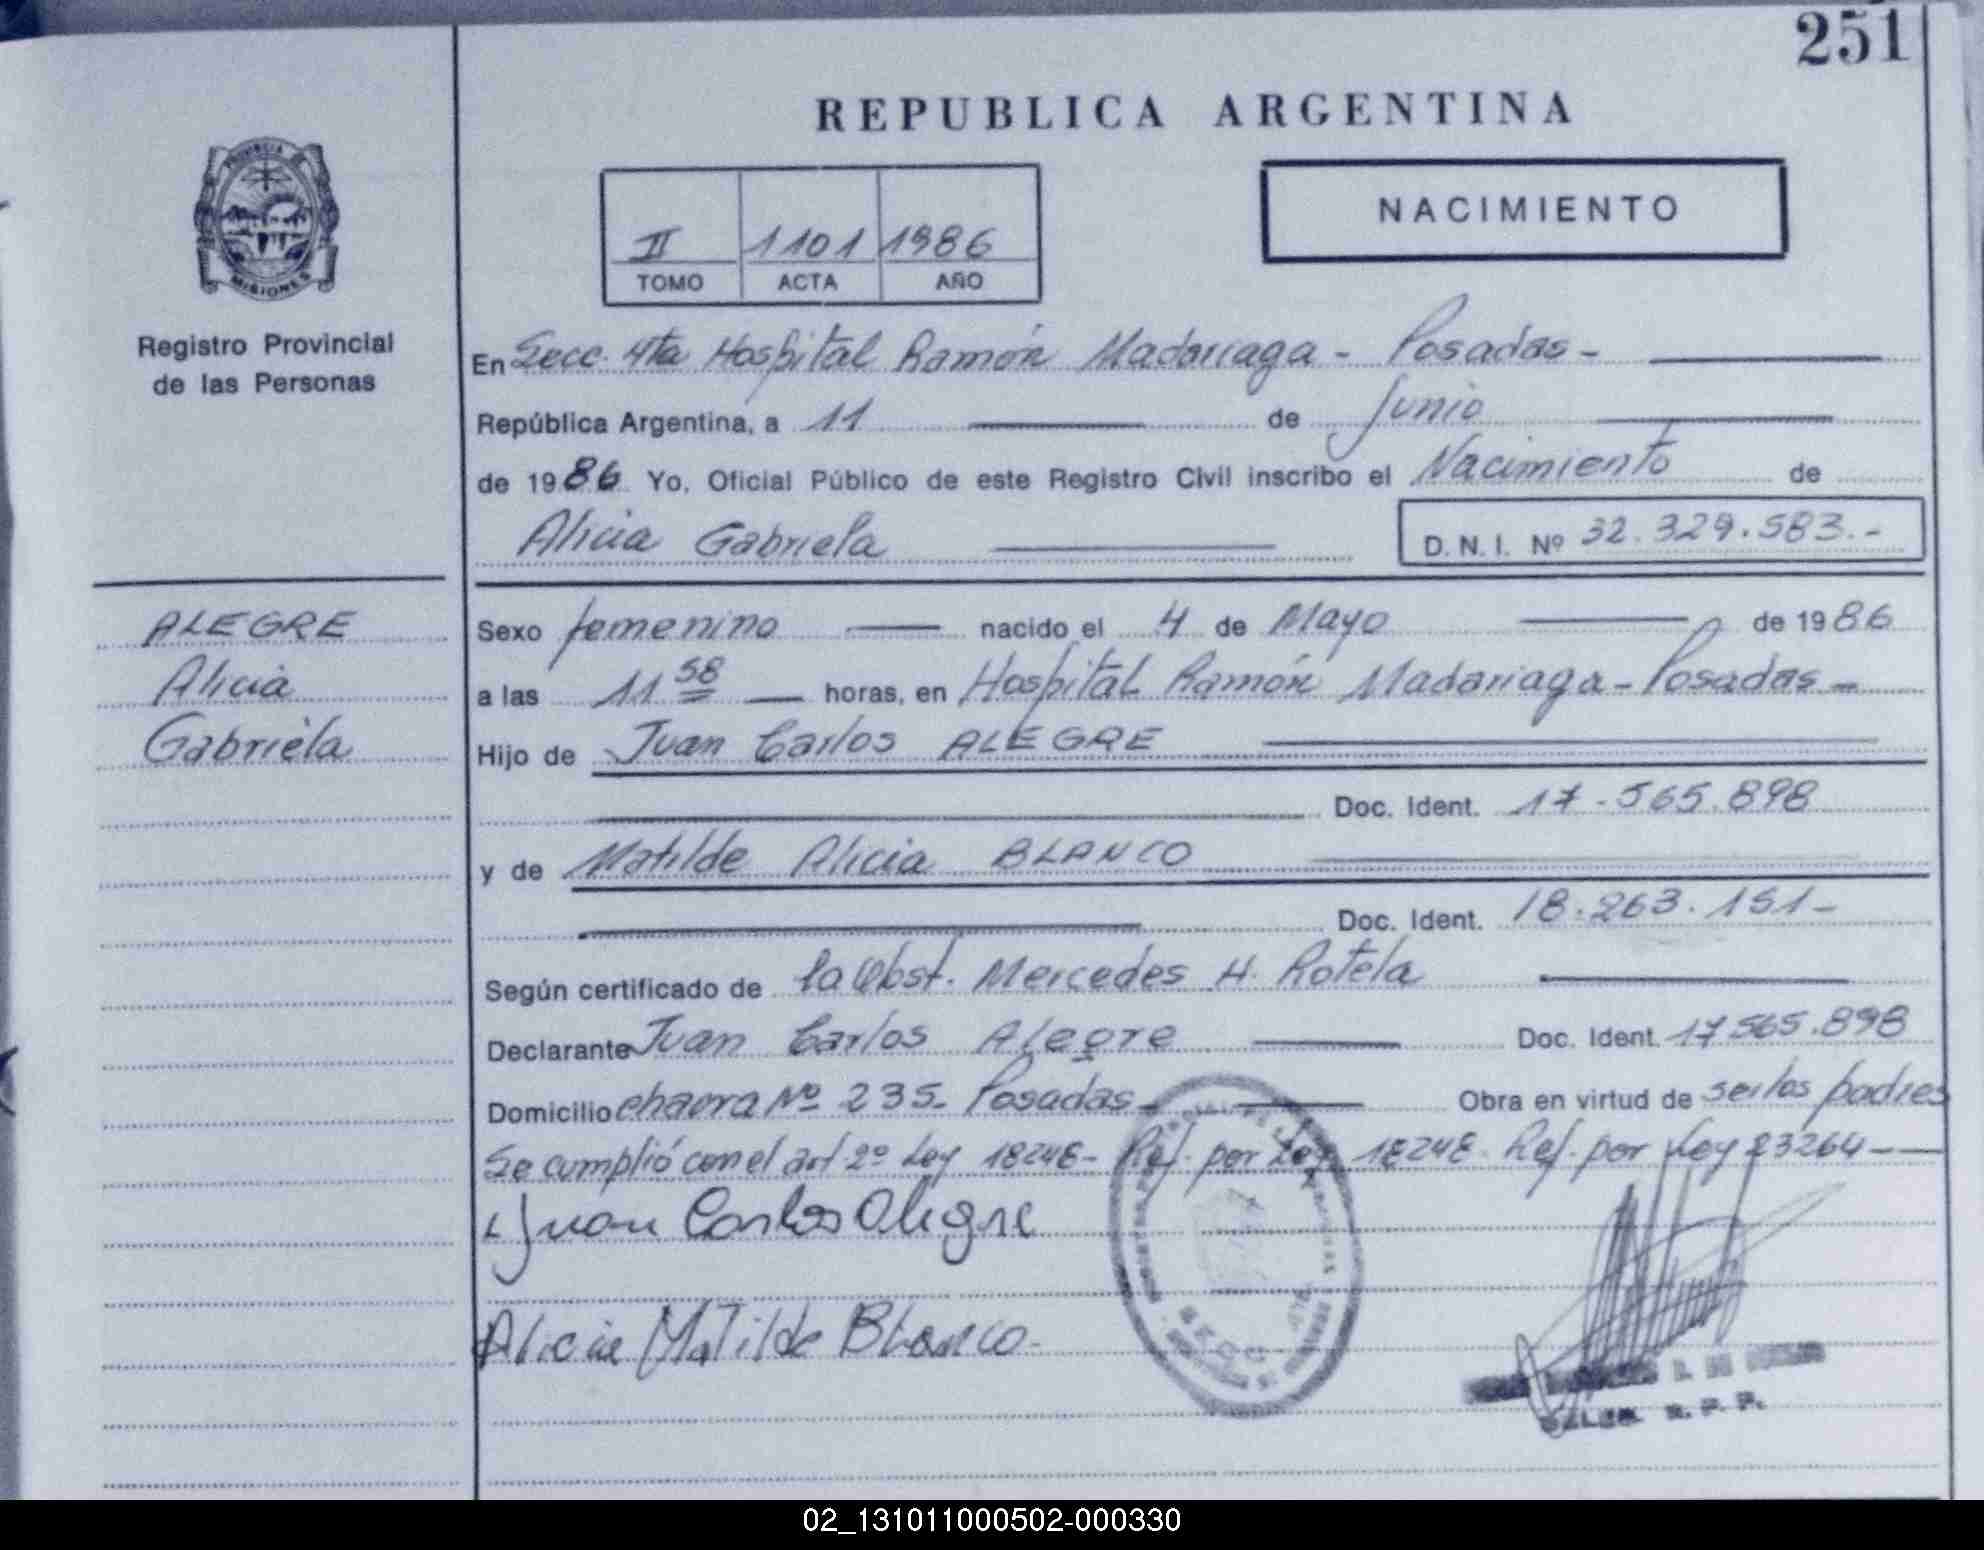 251
REPUBLICA ARGENTINA
PROVINCIA DE
MISIONES
Registro Provincial
de las Personas
II 1101 1986
TOMO ACTA AÑO
NACIMIENTO
En Secc. 4ta Hospital Ramón Madariaga - Posadas -
República Argentina, a 11 de Junio
de 1986 Yo, Oficial Público de este Registro Civil inscribo el Nacimiento de
Alicia Gabriela D. N. I. Nº 32.329.583.-
ALEGRE
Alicia
Gabriela
Sexo femenino nacido el 4 de Mayo de 1986
a las 11 58 horas, en Hospital Ramón Madariaga - Posadas -
Hijo de Juan Carlos ALEGRE
Doc. Ident. 17.565.898
y de Matilde Alicia BLANCO
Doc. Ident. 18.263.151-
Según certificado de la Obst. Mercedes H. Rotela
Declarante Juan Carlos Alegre Doc. Ident. 17565.898
Domicilio chacra Nº 235- Posadas- Obra en virtud de ser los padres
Se cumplió con el art. 2º Ley 18248- Ref. por Ley 18248- Ref. por Ley 23264-
Juan Carlos Alegre
Alicia Matilde Blanco-
R. P. P.
02_131011000502-000330